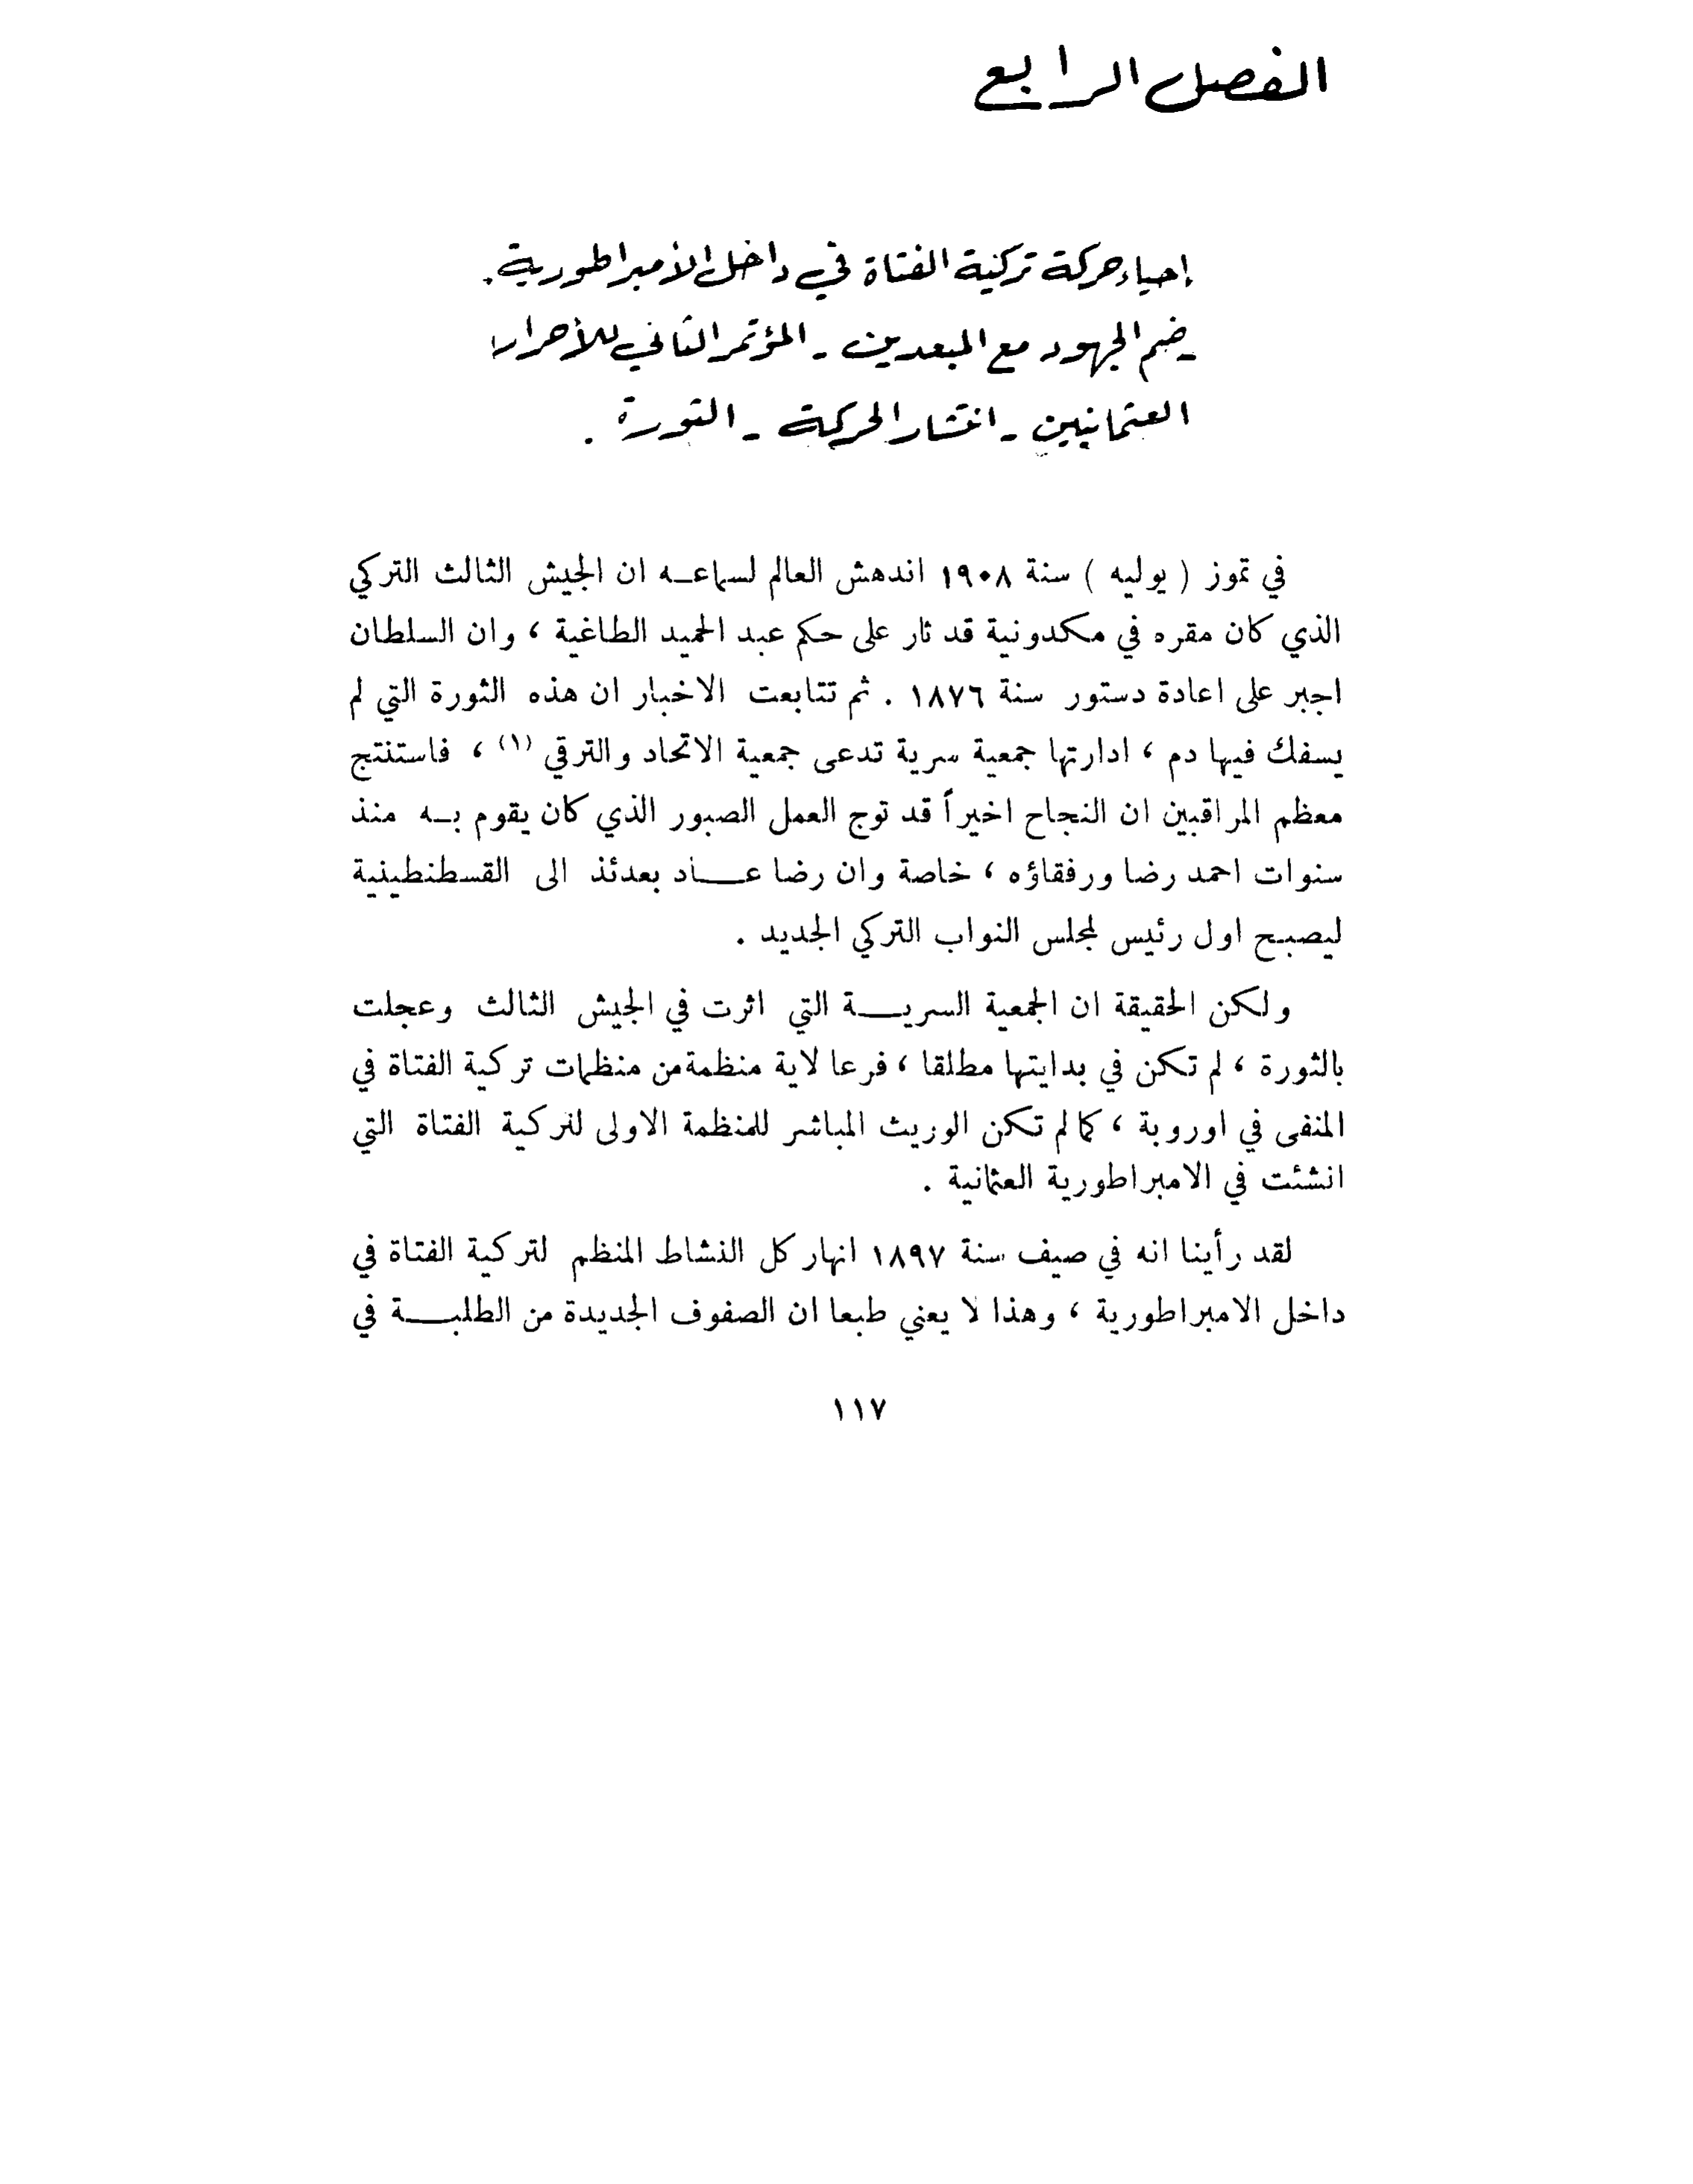 الفصل الرابع
إحياء حركة تركية الفتاة في داخل الأمبراطورية.
ـ ضم الجهود مع المبعدين ـ المؤتمر الثاني للأحرار
العثمانيين ـ انتشار الحركة ـ الثورة .
في تموز ( يوليه ) سنة ١٩٠٨ اندهش العالم لسماعـه ان الجيش الثالث التركي
الذي كان مقره في مكدونية قد ثار على حكم عبد الحميد الطاغية ، وان السلطان
اجبر على اعادة دستور سنة ١٨٧٦ . ثم تتابعت الاخبار ان هذه الثورة التي لم
يسفك فيها دم ، ادارتها جمعية سرية تدعى جمعية الاتحاد والترقي (١) ، فاستنتج
معظم المراقبين ان النجاح اخيراً قد توج العمل الصبور الذي كان يقوم بـه منذ
سنوات احمد رضا ورفقاؤه ، خاصة وان رضا عـــاد بعدئذ الى القسطنطينية
ليصبح اول رئيس لمجلس النواب التركي الجديد .
ولكن الحقيقة ان الجمعية السريـــة التي اثرت في الجيش الثالث وعجلت
بالثورة ، لم تكن في بدايتها مطلقا ، فرعا لاية منظمة من منظمات تركية الفتاة في
المنفى في اوروبة ، كما لم تكن الوريث المباشر للمنظمة الاولى لتركية الفتاة التي
انشئت في الامبراطورية العثمانية .
لقد رأينا انه في صيف سنة ١٨٩٧ انهار كل النشاط المنظم لتركية الفتاة في
داخل الامبراطورية ، وهذا لا يعني طبعا ان الصفوف الجديدة من الطلبـــة في
١١٧